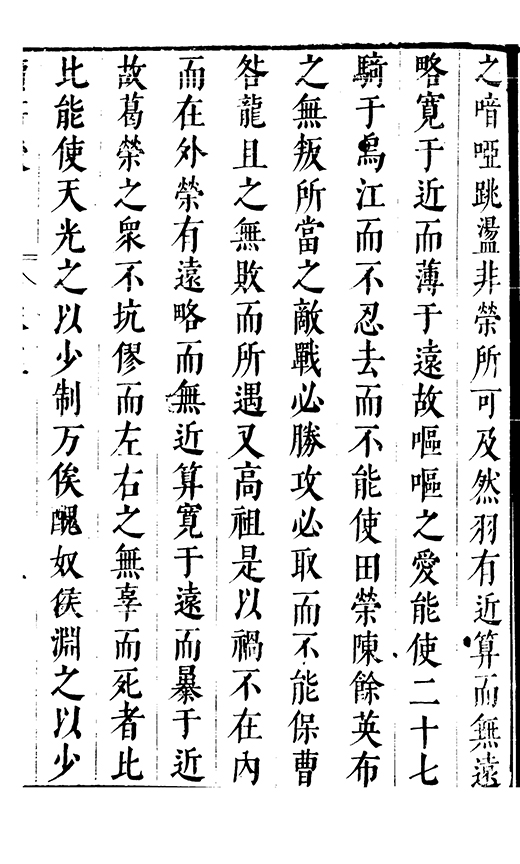 之喑啞跳盪非榮所可及然羽有近算而無遠
略寬于近而薄于遠故嘔嘔之愛能使二十七
騎于烏江而不忍去而不能使田榮陳餘英布
之無叛所當之敵戰必勝攻必取而不能保曹
咎龍且之無敗而所遇又高祖是以禍不在內
而在外榮有遠略而無近算寬于遠而暴于近
故葛榮之衆不坑僇而左右之無辜而死者比
比能使天光之以少制万俟醜奴侯淵之以少